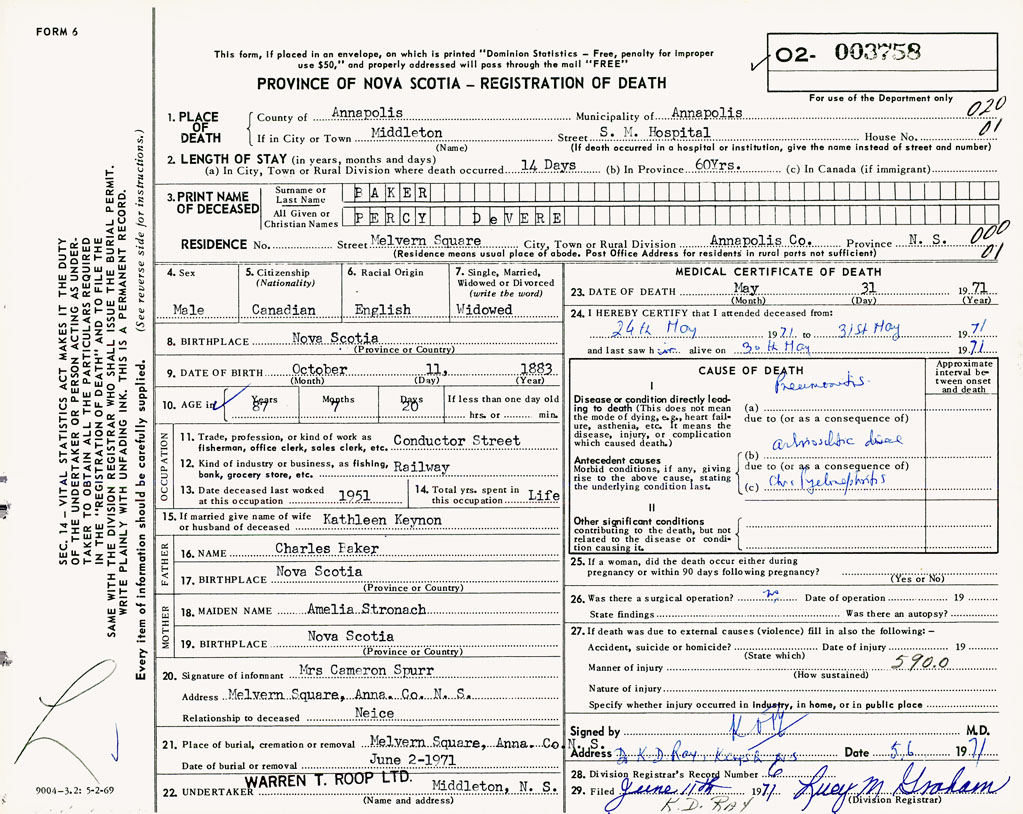 FORM 6
This form, if placed in an envelope, on which is printed "Dominion Statistics – Free, penalty for improper
use $50," and properly addressed will pass through the mail "FREE"
O2- 003758
PROVINCE OF NOVA SCOTIA – REGISTRATION OF DEATH
For use of the Department only
020
01
1. PLACE OF DEATH
County of Annapolis Municipality of Annapolis
If in City or Town Middleton Street S. M. Hospital House No.
(Name) (If death occurred in a hospital or institution, give the name instead of street and number)
2. LENGTH OF STAY (in years, months and days)
(a) In City, Town or Rural Division where death occurred 14 Days (b) In Province 60Yrs. (c) In Canada (if immigrant)
3. PRINT NAME OF DECEASED
Surname or Last Name BAKER
All Given or Christian Names PERCY DeVERE
RESIDENCE No. Street Melvern Square City, Town or Rural Division Annapolis Co. Province N. S.
(Residence means usual place of abode. Post Office Address for residents in rural parts not sufficient)
000
01
4. Sex
Male
5. Citizenship
(Nationality)
Canadian
6. Racial Origin
English
7. Single, Married,
Widowed or Divorced
(write the word)
Widowed
8. BIRTHPLACE Nova Scotia
(Province or Country)
9. DATE OF BIRTH October 11, 1883
(Month) (Day) (Year)
10. AGE in Years Months Days If less than one day old
87 7 20 hrs. or min.
OCCUPATION
11. Trade, profession, or kind of work as
fisherman, office clerk, sales clerk, etc. Conductor Street
12. Kind of industry or business, as fishing,
bank, grocery store, etc. Railway
13. Date deceased last worked
at this occupation 1951
14. Total yrs. spent in
this occupation Life
15. If married give name of wife
or husband of deceased Kathleen Keynon
FATHER
16. NAME Charles Baker
17. BIRTHPLACE Nova Scotia
(Province or Country)
MOTHER
18. MAIDEN NAME Amelia Stronach
19. BIRTHPLACE Nova Scotia
(Province or Country)
20. Signature of informant Mrs Cameron Spurr
Address Melvern Square, Anna. Co. N. S.
Relationship to deceased Neice
21. Place of burial, cremation or removal Melvern Square, Anna. Co. N. S.
Date of burial or removal June 2-1971
22. UNDERTAKER WARREN T. ROOP LTD. Middleton, N. S.
(Name and address)
MEDICAL CERTIFICATE OF DEATH
23. DATE OF DEATH May 31 1971
(Month) (Day) (Year)
24. I HEREBY CERTIFY that I attended deceased from:
24th May 1971 to 31st May 1971
and last saw him alive on 30th May 1971
CAUSE OF DEATH
Approximate
interval be-
tween onset
and death
I
Disease or condition directly lead-
ing to death (This does not mean
the mode of dying, e.g., heart fail-
ure, asthenia, etc. It means the
disease, injury, or complication
which caused death.)
Pneumonitis
(a)
due to (or as a consequence of)
Antecedent causes
Morbid conditions, if any, giving
rise to the above cause, stating
the underlying condition last.
(b)
due to (or as a consequence of)
(c) Chr. Pyelonephritis
II
Other significant conditions
contributing to the death, but not
related to the disease or condi-
tion causing it.
25. If a woman, did the death occur either during
pregnancy or within 90 days following pregnancy?
(Yes or No)
26. Was there a surgical operation? no Date of operation 19
State findings Was there an autopsy?
27. If death was due to external causes (violence) fill in also the following: –
Accident, suicide or homicide? Date of injury 19
(State which)
Manner of injury 590.0
(How sustained)
Nature of injury
Specify whether injury occurred in industry, in home, or in public place
Signed by M.D.
Address Dr K. D. Ray, Date 5.6 1971
28. Division Registrar's Record Number 6
29. Filed June 11th 1971 Lucy M Graham
(Division Registrar)
K. D. RAY
SEC. 14 – VITAL STATISTICS ACT MAKES IT THE DUTY
OF THE UNDERTAKER OR PERSON ACTING AS UNDER-
TAKER TO OBTAIN ALL THE PARTICULARS REQUIRED
IN THE "REGISTRATION OF DEATH" AND TO FILE THE
SAME WITH THE DIVISION REGISTRAR WHO SHALL ISSUE THE BURIAL PERMIT.
WRITE PLAINLY WITH UNFADING INK. THIS IS A PERMANENT RECORD.
Every item of information should be carefully supplied. (See reverse side for instructions.)
9004–3.2: 5-2-69